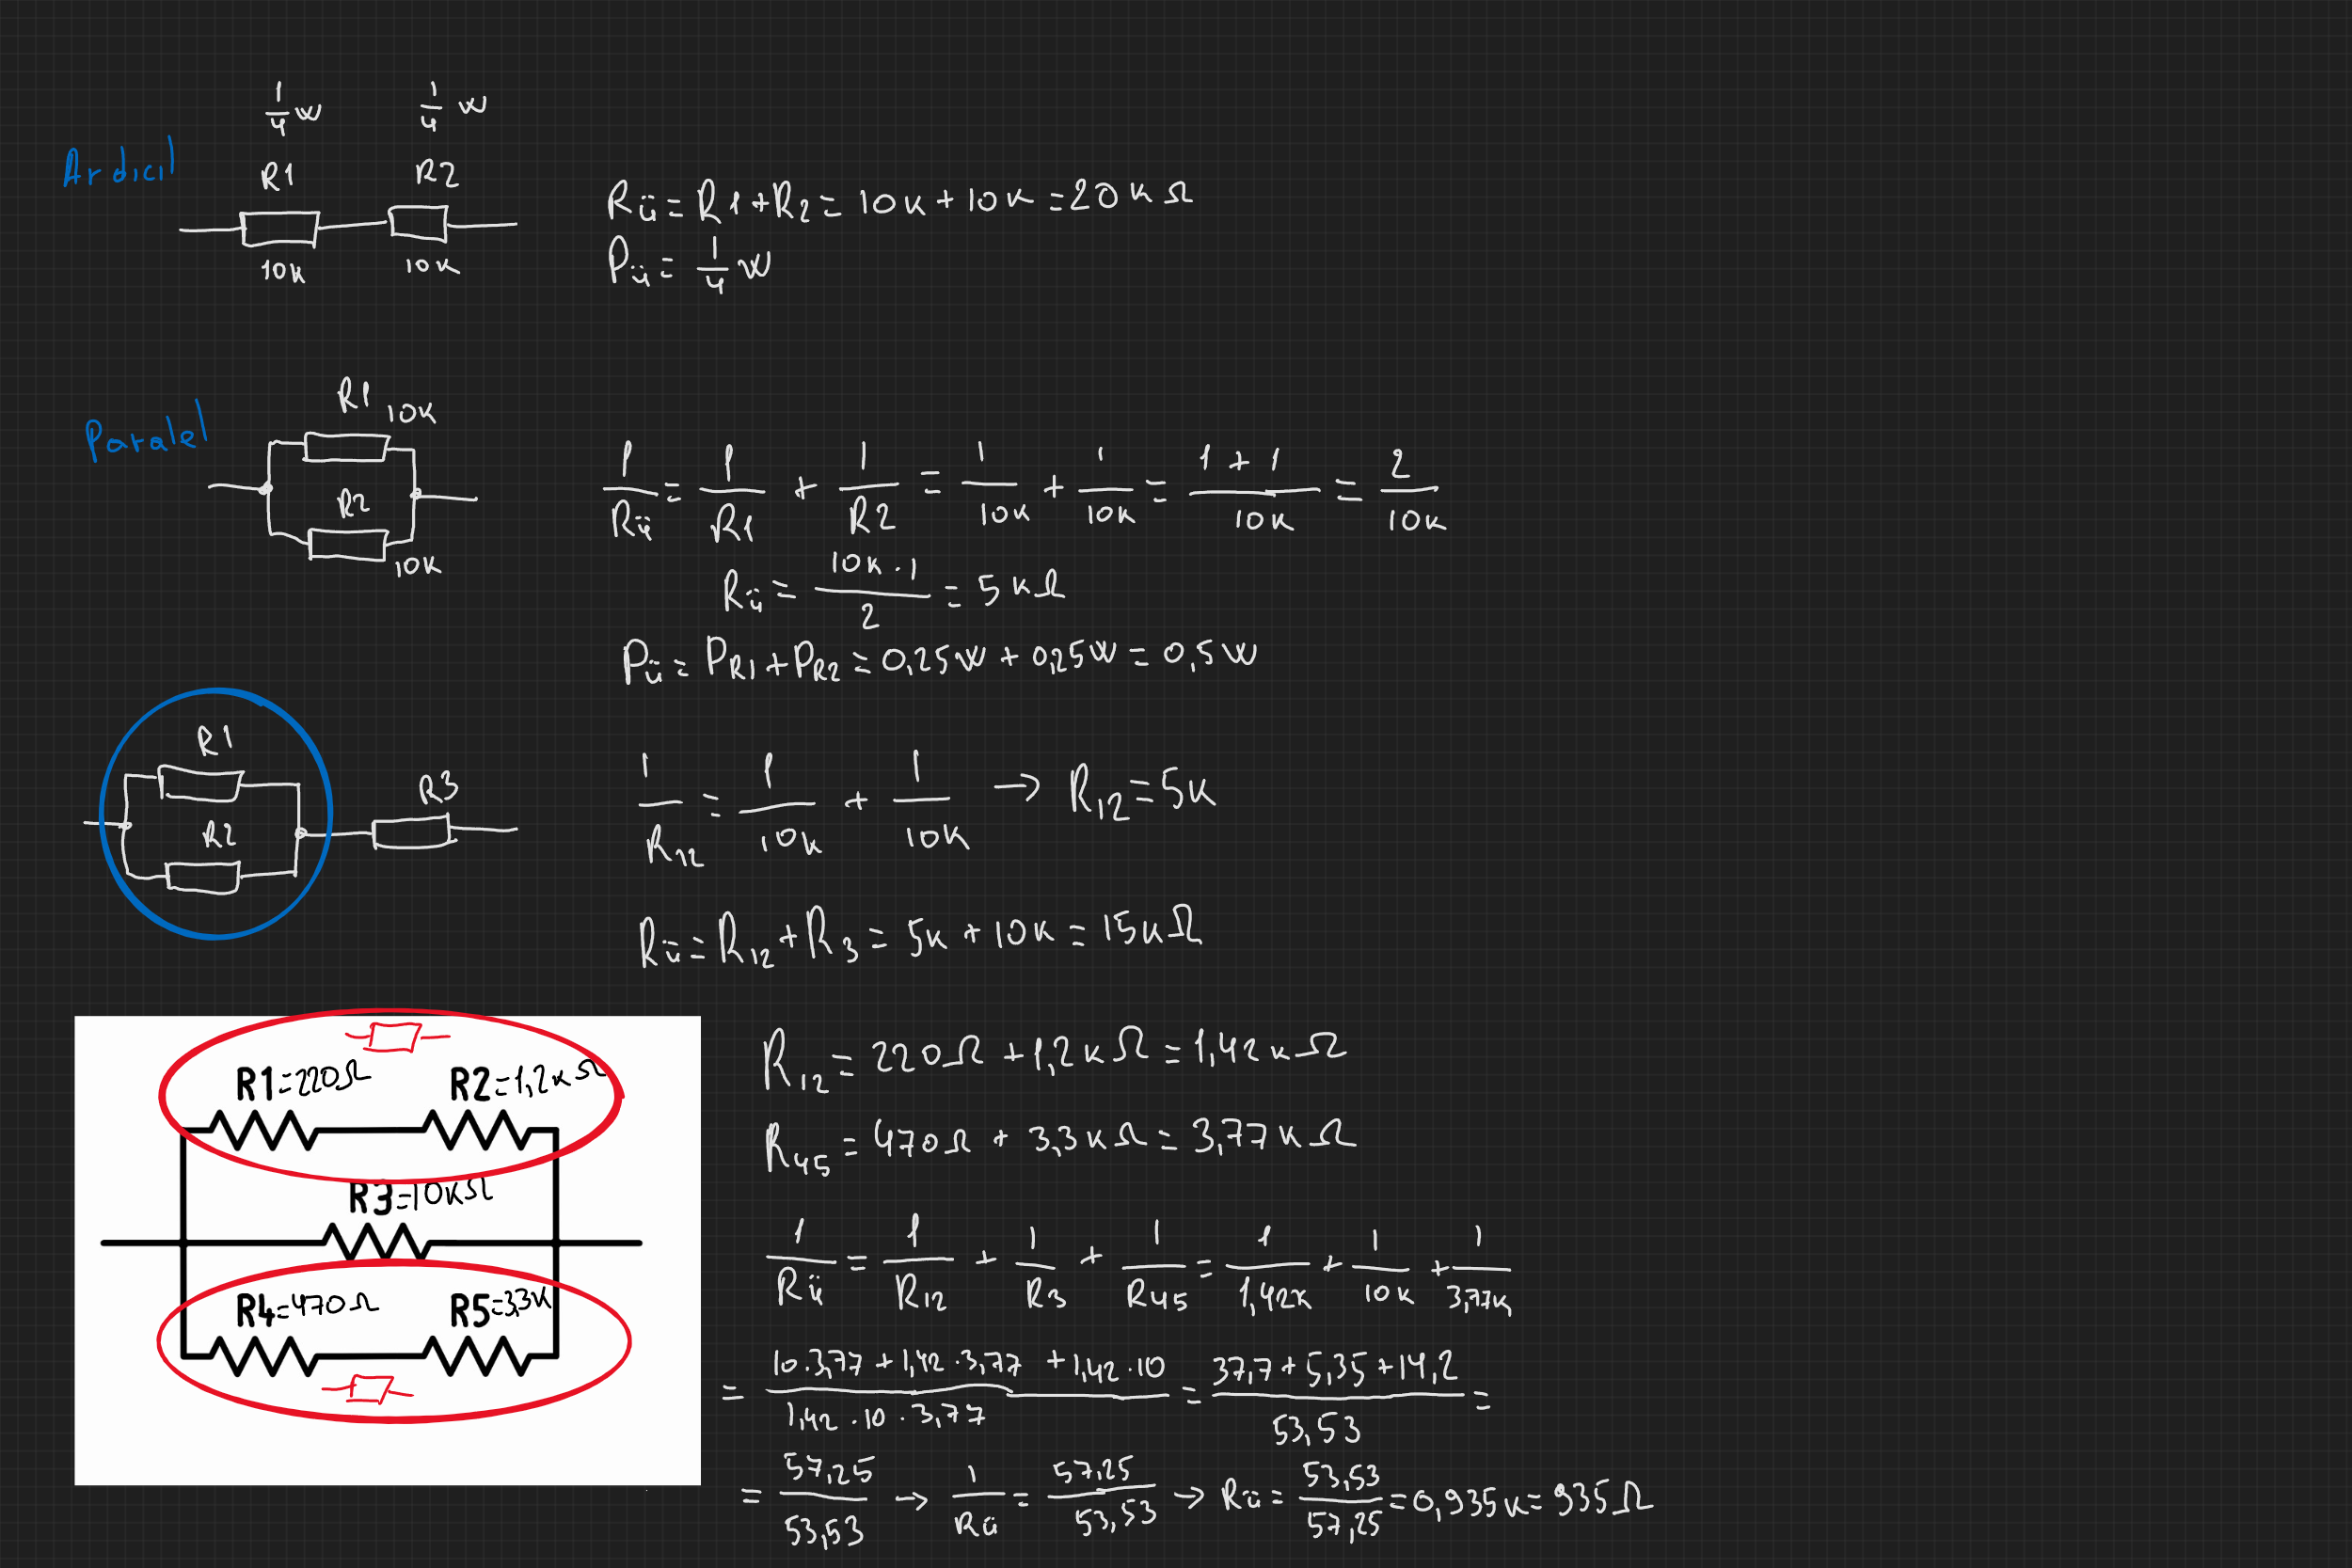 1/4 W 1/4 W
Ardıcıl
R1 R2
10k 10k
Rü = R1 + R2 = 10k + 10k = 20k Ω
Pü = 1/4 W
Paralel
R1 10k
R2
10k
1/Rü = 1/R1 + 1/R2 = 1/10k + 1/10k = 1+1/10k = 2/10k
Rü = 10k·1/2 = 5 kΩ
Pü = PR1 + PR2 = 0,25W + 0,25W = 0,5W
R1
R2
R3
1/R12 = 1/10k + 1/10k → R12 = 5k
Rü = R12 + R3 = 5k + 10k = 15kΩ
R1=220Ω R2=1,2kΩ
R3=10kΩ
R4=470Ω R5=3,3k
R12 = 220Ω + 1,2kΩ = 1,42kΩ
R45 = 470Ω + 3,3kΩ = 3,77kΩ
1/Rü = 1/R12 + 1/R3 + 1/R45 = 1/1,42k + 1/10k + 1/3,77k
= 10·3,77 + 1,42·3,77 + 1,42·10/1,42·10·3,77 = 37,7 + 5,35 + 14,2/53,53 =
= 57,25/53,53 → 1/Rü = 57,25/53,53 → Rü = 53,53/57,25 = 0,935k = 935Ω